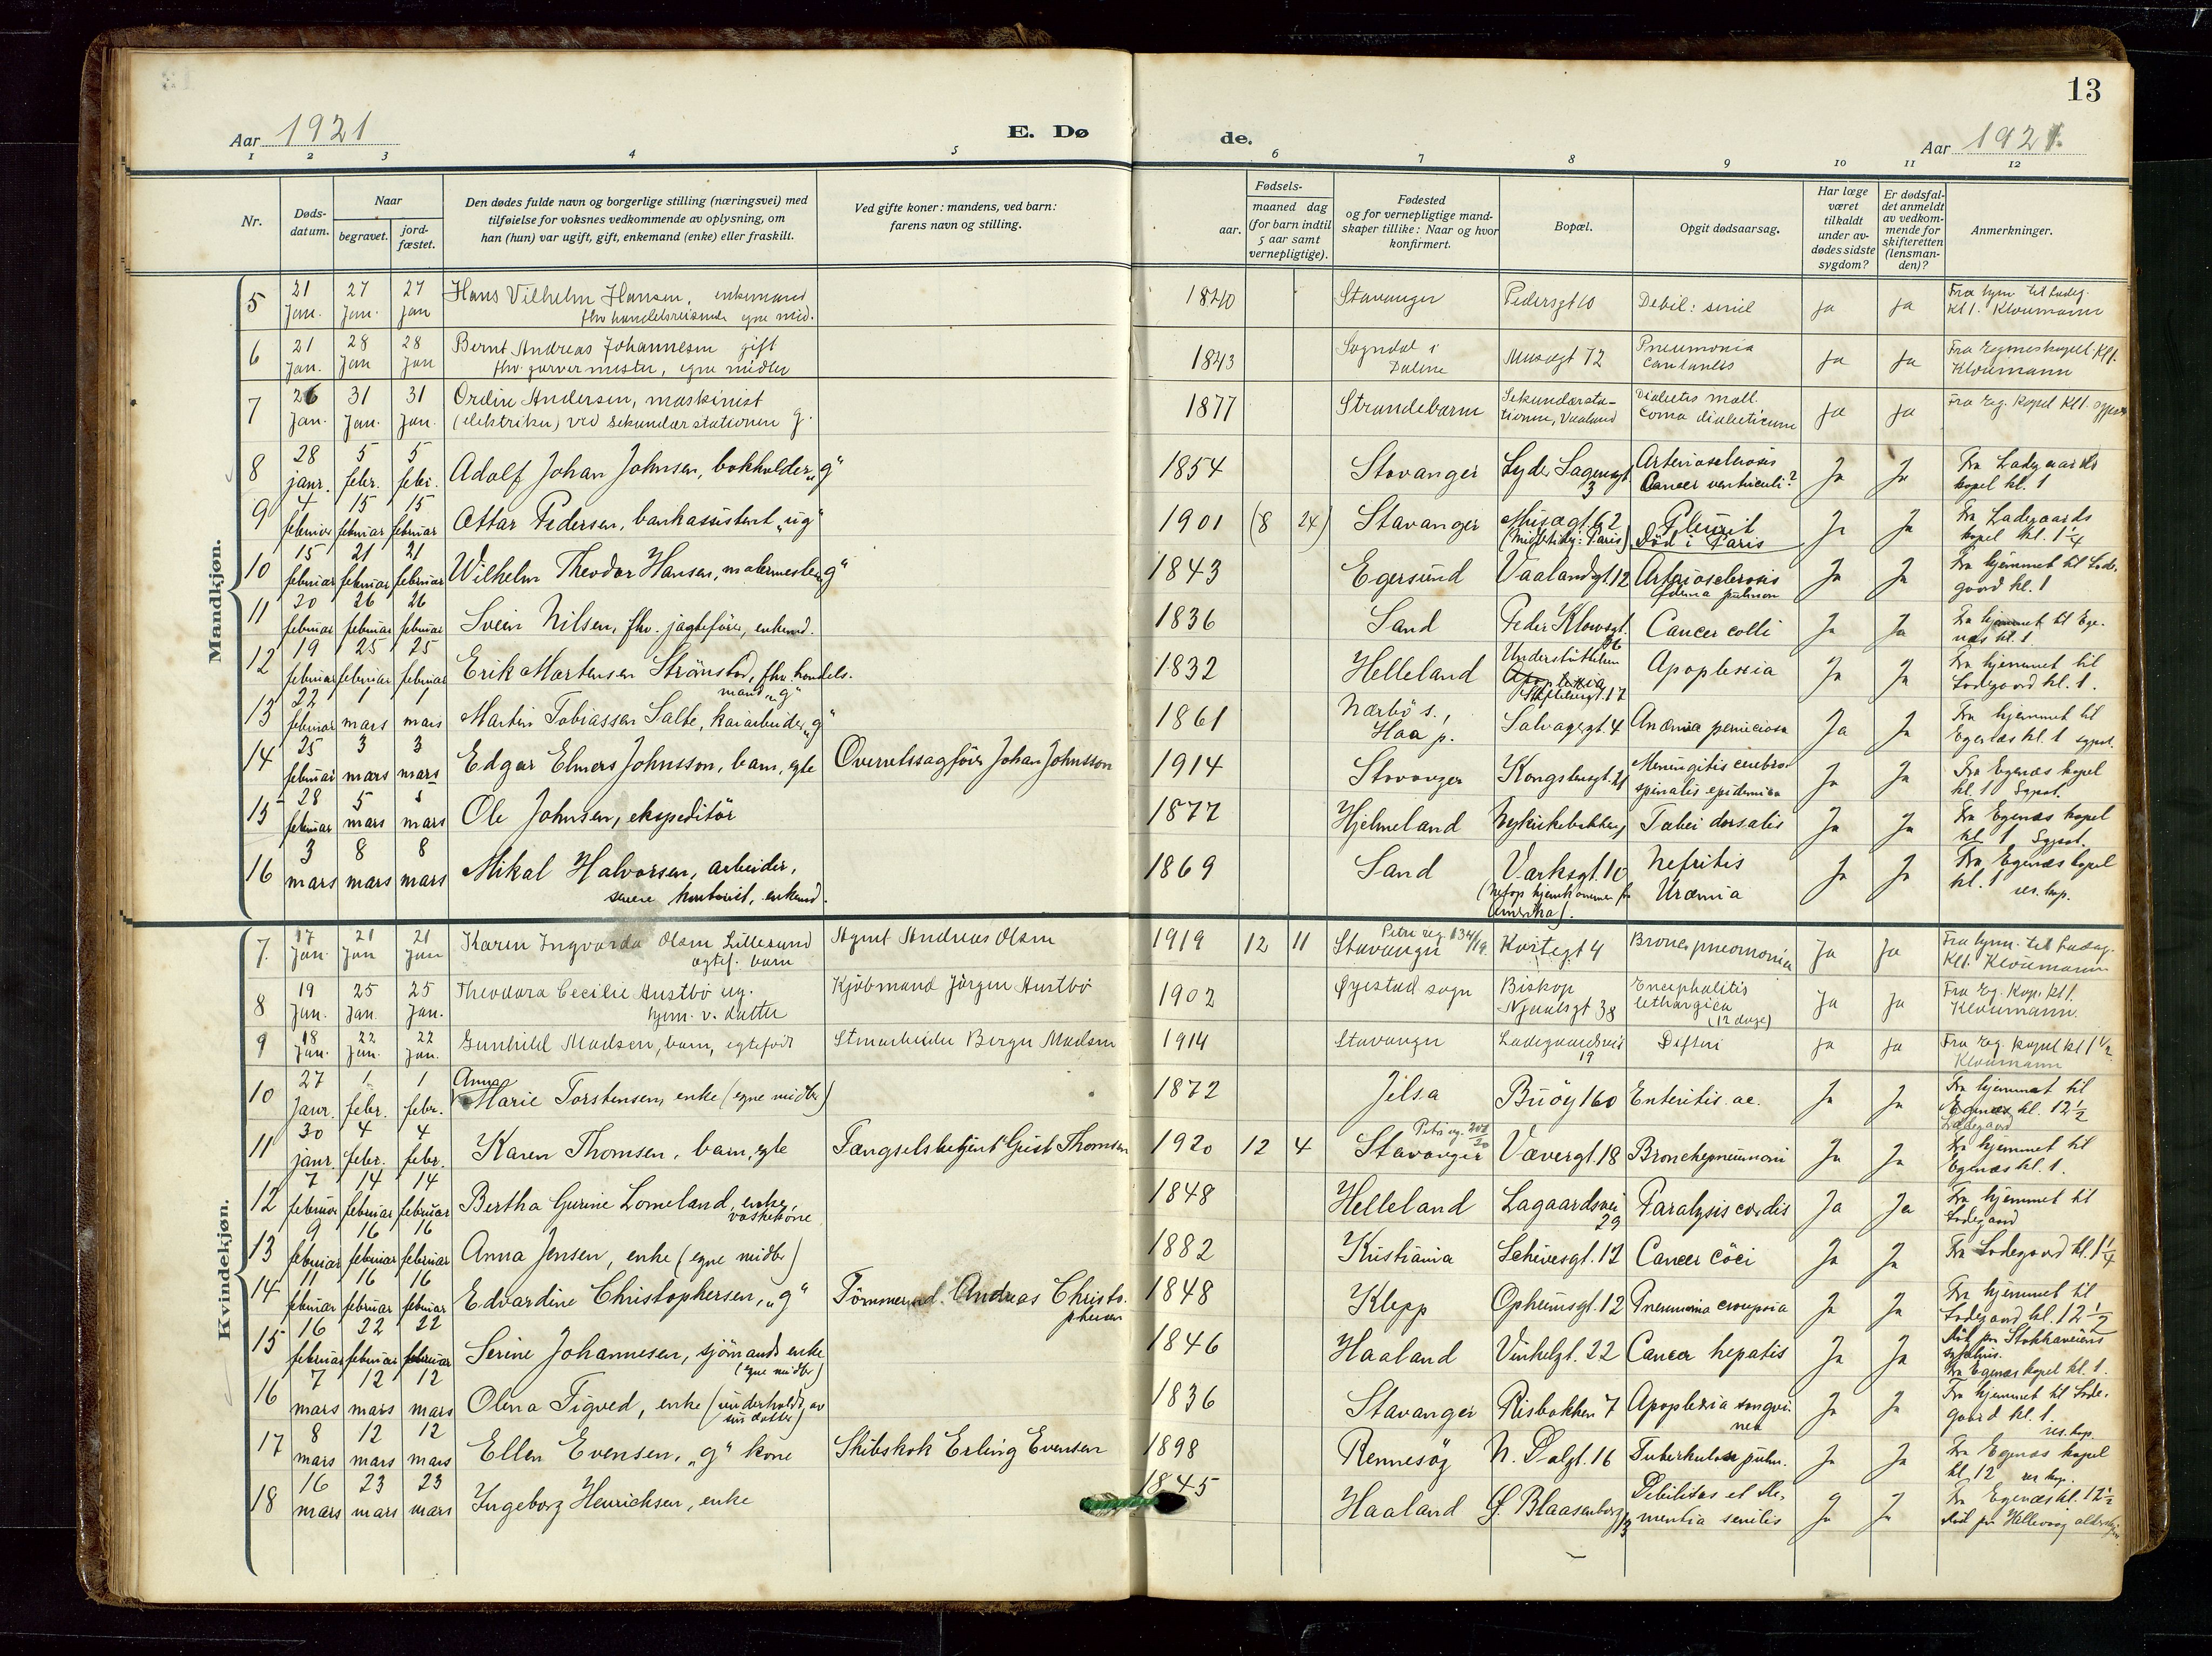 13
Aar 1921
E. Dø
de.
Aar 1921.
1 2 3 4 5 6 7 8 9 10 11 12
Nr.
Døds-
datum.
Naar
begravet.
jord-
fæstet.
Den dødes fulde navn og borgerlige stilling (næringsvei) med
tilføielse for voksnes vedkommende av oplysning, om
han (hun) var ugift, gift, enkemand (enke) eller fraskilt.
Ved gifte koner: mandens, ved barn:
farens navn og stilling.
Fødsels-
aar.
maaned dag
(for barn indtil
5 aar samt
vernepligtige).
Fødested
og for vernepligtige mand-
skaper tillike: Naar og hvor
konfirmert.
Bopæl.
Opgit dødsaarsag.
Har læge
været
tilkaldt
under av-
dødes sidste
sygdom?
Er dødsfal-
det anmeldt
av vedkom-
mende for
skifteretten
(lensman-
den)?
Anmerkninger.
Mandkjøn.
5 21 Jan. 27 Jan. 27 Jan Hans Vilhelm Hansen, enkemand
fhv handelsreisende egne mid. 1840 Stavanger Pedersgt 10 Debil: senil ja ja Fra hjem til Ladeg.
kl 1. Kloumann
6 21 Jan. 28 Jan 28 Jan Bernt Andreas Johannesen gift
fhv. garvermester, egne midler 1843 Sogndal i
Dalene Musegt 72 Pneumonia ja ja Fra Egenes kapel kl 1.
Kloumann
7 26 Jan. 31 Jan. 31 Jan. Andersen, maskinist
(elektriker) ved sekundærstationen g. 1877 Strandebarm Sekundærsta-
tionen, Vaaland Diabetes mell.
Coma diabeticum ja ja Fra Eg. kapel kl 1.
8 28 janr. 5 febr. 5 febr. Adolf Johan Johnsen, bokholder „g" 1854 Stavanger Lyder Sagensgt
3 Arteriosclerosis
Cancer ventriculi? Ja Ja Fra Ladegaards
kapel kl. 1
9 4 februar 15 februar 15 februar Ottar Pedersen, bankassistent „ug" 1901 (8 24) Stavanger Musægt. 62
(Midlertidig: Paris) Pleurit
Død i Paris Ja Ja Fra Ladegaards
kapel kl. 1 1/4
10 15 februar 21 februar 21 februar Wilhelm Theodor Hansen, malermester „g" 1843 Egersund Vaalandsgt. 12 Arteriosclerosis
Ødema pulmon Ja Ja Fra hjemmet til Lade-
gaard kl. 1
11 20 februar 26 februar 26 februar Svein Nilsen, fhv. jagtefører, enkemd. 1836 Sand Peder Klowsgt. Cancer colli Ja Ja Fra hjemmet til Ege-
næs kl. 1
12 19 februar 25 februar 25 februar Erik Martensen Strømstad, fhv. handels-
mand „g" 1832 Helleland Understøttelsen
Apoplexia Ja Ja Fra hjemmet til
Ladegaard kl. 1.
13 22 februar 1 mars 1 mars Martin Tobiassen Salte, kaiarbeider „g" 1861 Nærbø s.,
Haa p. Salvagergt. 4 Anæmia perniciosa Ja Ja Fra hjemmet til
Egenæs kl. 1
14 25 februar 3 mars 3 mars Edgar Elmers Johnsson, barn, egte Overretssagfører Johan Johnsson 1914 Stavanger Kongstensgt. 21 Meningitis cerebro
spinalis epidemica Ja Ja Fra Egenæs kapel
kl. 1
15 28 februar 5 mars 5 mars Ole Johnsen, ekspeditør 1877 Hjelmeland Tabes dorsalis Ja Ja Fra Egenæs kapel
kl. 1
16 3 mars 8 mars 8 mars Mikal Halvorsen, arbeider,
enkemd. 1869 Sand Verksgt. 10
(netop hjemkommen fra
Amerika). Nefritis
Uræmia Ja Ja Fra Egenæs kapel
kl. 1 res. kap.
Kvindekjøn.
7. 17 Jan. 21 Jan 21 Jan Karen Ingvarda Olsen Lillesund
egtef. barn Agent Andreas Olsen 1919 12 11 Petri reg. 134/19.
Stavanger Kvitegt 4 Broncopneumonia Ja Ja Fra hjem. til Ladeg.
kl 1. Kloumann
8 19 Jan. 25 Jan. 25 Jan. Theodora Cecilie Austbø ug.
hjem. v. datter Kjøbmand Jørgen Austbø 1902 Øyestad sogn Biskop
Njaalsgt 38 Encephalitis
lethargica
(12 dage) Ja Ja Fra Eg. Kap. kl 1.
Kloumann.
9 18 Jan. 22 Jan. 22 Jan. Gunhild Madsen, barn, egtefødt Stenarbeider Berge Madsen 1914 Stavanger Ladegaardsvei
19 Difteri ja ja Fra Eg. kapel kl 1 1/2
Kloumann
10 27 Janr. 1 febr. 1 febr. Anna
Marie Torstensen, enke (egne midler) 1872 Jelsa Buøy 160 Enteritis ac. Ja Ja Fra hjemmet til
Egenæs kl. 12 1/2
Ladegaard
11 30 janr. 4 febr. 4 febr. Karen Thomsen, barn, egte Fængselsbetjent Gust Thomsen 1920 12 4 Stavanger Vævergt. 18 Bronchopneumoni Ja Ja Fra hjemmet til
Egenæs kl. 1.
12 7 februar 14 februar 14 februar Bertha Gurine Lomeland, enke,
vaskekone 1848 Helleland Lagaardsvei
29 Paralysis cordis Ja Ja Fra hjemmet til
Ladegaard
13 9 februar 16 februar 16 februar Anna Jensen, enke (egne midler) 1882 Kristiania Schivesgt. 12 Cancer cöci Ja Ja Fra Ladegaard kl. 1 1/4
14 11 februar 16 februar 16 februar Edvardine Christophersen, „g" Tømmermd. Andreas Christo-
phersen 1848 Klepp Opheimsgt. 12 Pneumonia crouposa Ja Ja Fra hjemmet til
Ladegaard kl. 12 1/2
15 16 februar 22 februar 22 februar Serine Johannesen, sjømands enke
(egne midler) 1846 Haaland Vinkelgt. 22 Cancer hepatis Ja Ja Død på Stokkaveiens
sykehus.
Fra Egenæs kapel kl. 1.
16 7 mars 12 mars 12 mars Olena Tigved, enke (underholdt av
sin datter) 1836 Stavanger Risbakken 7 Apoplexia sangvi-
nea Ja Ja Fra hjemmet til Lade-
gaard kl. 1.
res. kap.
17 8 mars 12 mars 12 mars Ellen Evensen, „g" kone Skibskok Erling Evensen 1898 Rennesøy N. Dalgt. 16 Tuberkulose pulm. Ja Ja Fra Egenæs kapel
kl. 12 res. kap.
18 16 mars 23 mars 23 mars Ingeborg Henrichsen, enke 1845 Haaland Ø. Blaasenborg 13 Debilitas et de-
mentia senilis Ja Ja Fra Egenæs kl. 12 1/2
Død på Hillevaag